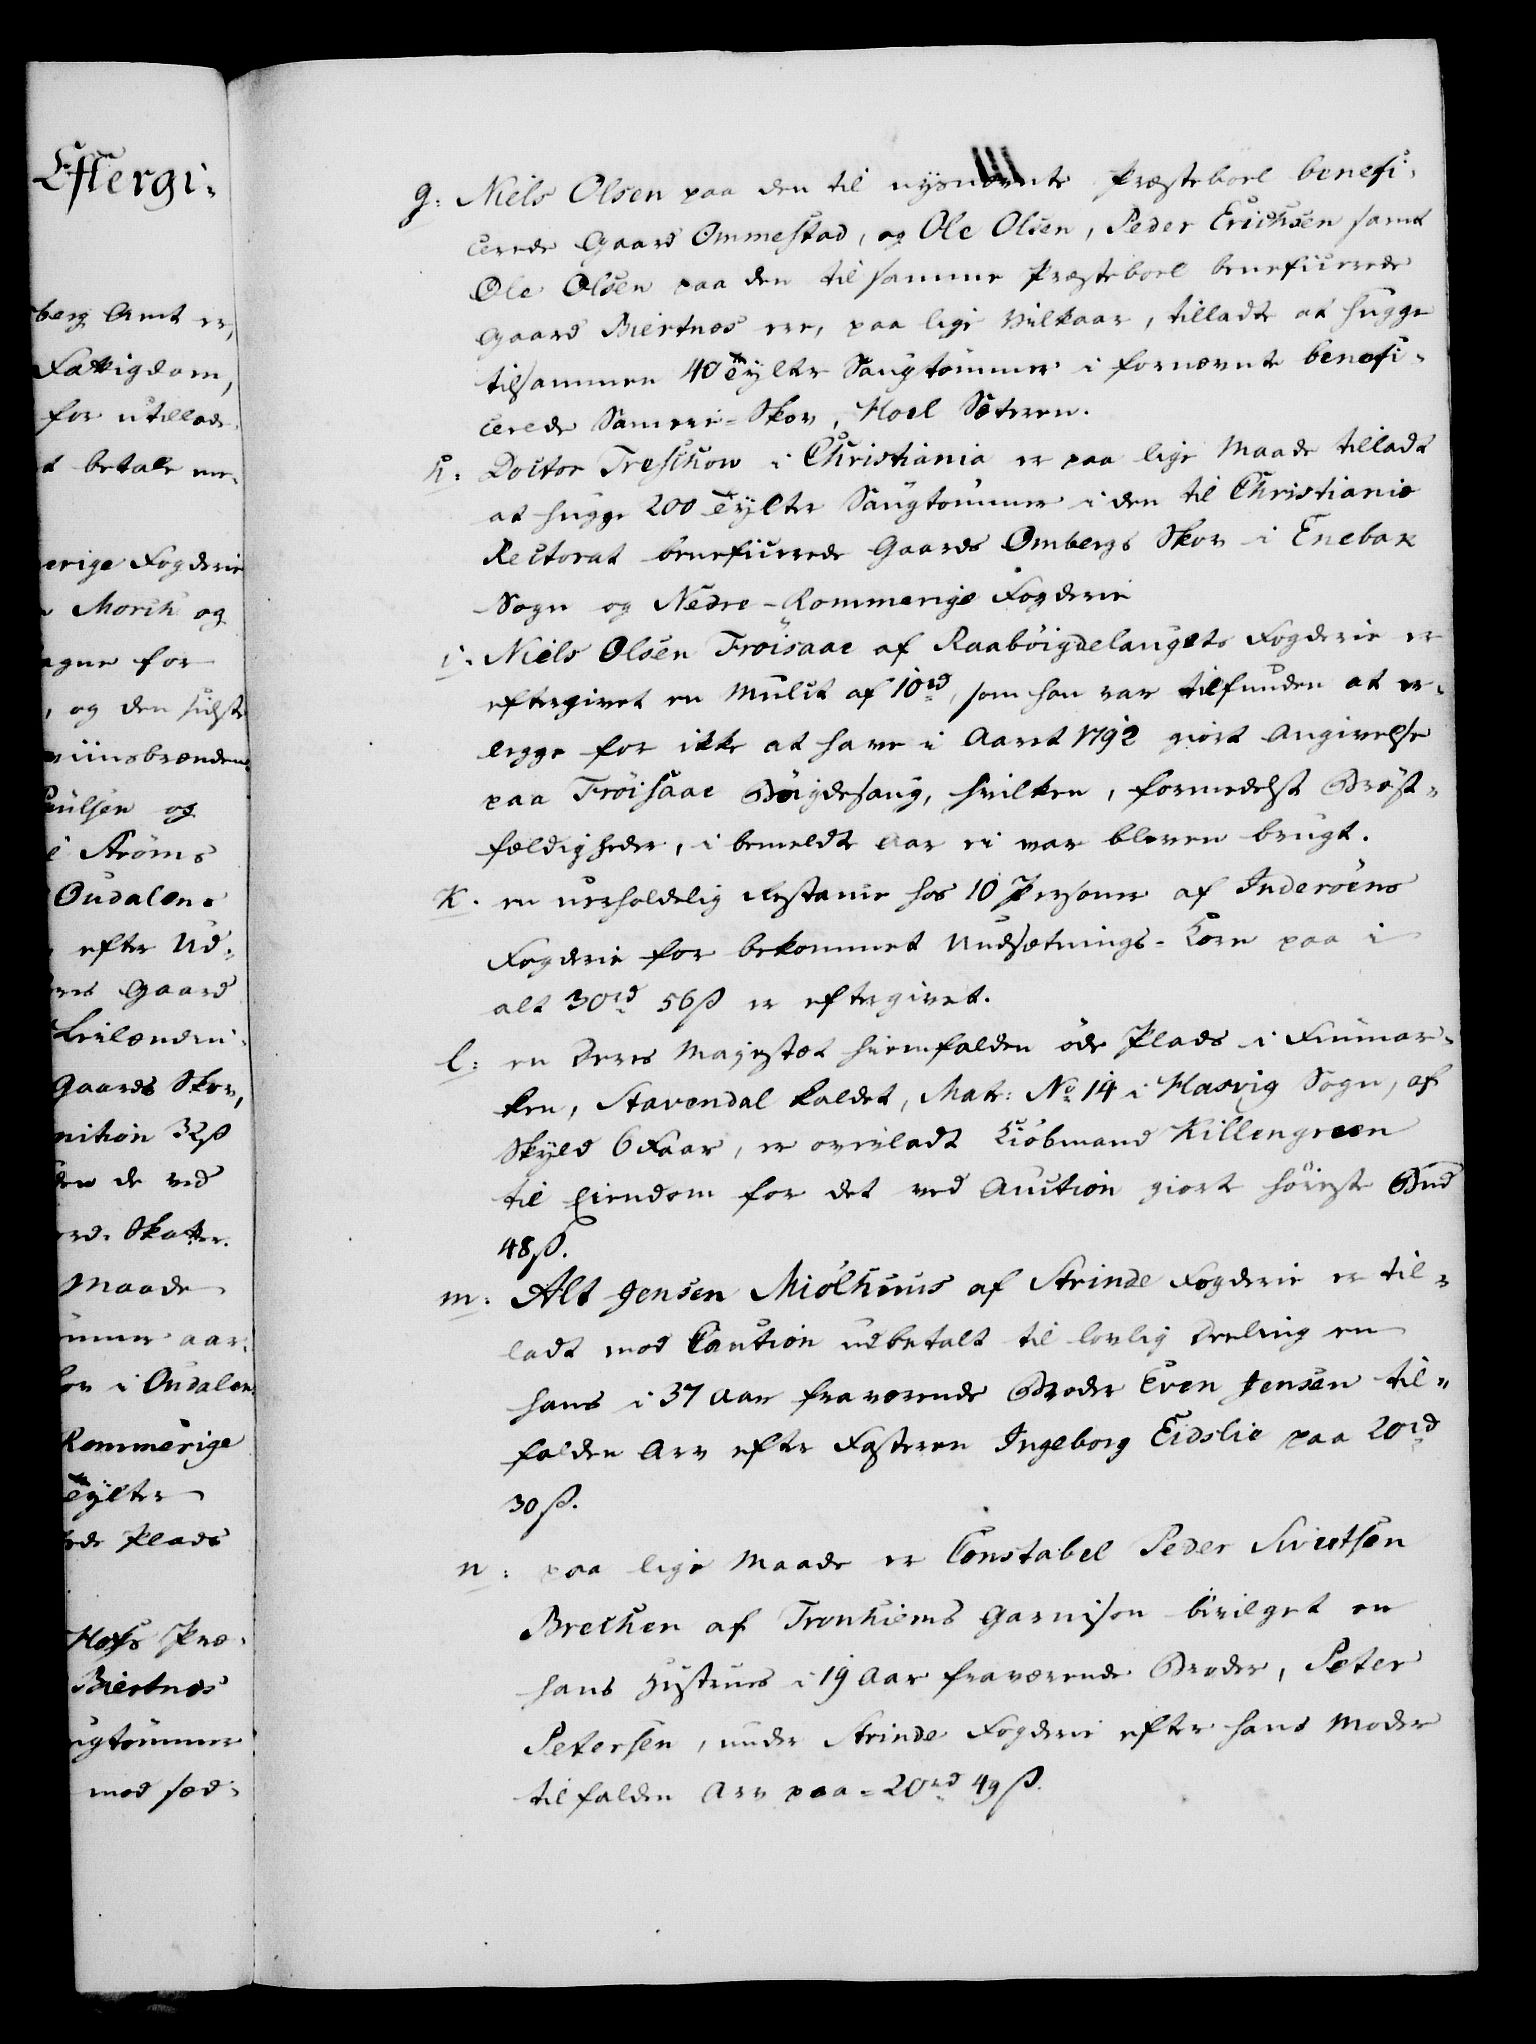 Eftergi-
berg Amt er,
Fattigdom,
for utillade-
t betale me-
erige Fogderie
Morch og
agne for
, og den sidste
viinsbrænden-
Paulsen og
i Strøms
Oudalens
efter Ud-
Gaard
Leilændin-
Gaards Skov,
nition 32 ß
den de ved
ord. Skatter.
Maade
aar-
kov i Oudalen
Rommerige
Tylter
ede Plads
Hofs Præ-
Biertnæs
ugtømmer
mod sæd-
g: Niels Olsen paa den til nysnævnte Præsteboel benefi-
cerede Gaard Ommestad, og Ole Olsen, Peder Erichsen samt
Ole Olsen paa den til samme Præsteboel beneficerede
Gaard Biertnæs ere, paa lige Vilkaar, tilladt at hugge
tilsammen 40 Tylter Saugtømmer i fornævnte benefi-
cerede Sameie-Skov, Hoel Sæteren.
h: Doctor Treschow i Christiania er paa lige Maade tilladt
at hugge 200 Tylter Saugtømmer i den til Christiania
Rectorat beneficerede Gaards Ombergs Skov i Enebak
Sogn og Nedre-Rommerige Fogderie
i. Niels Olsen Frøisaae af Raabøigdelaugets Fogderie er
eftergivet en Mulct af 10 rd, som han var tilfunden at er-
legge for ikke at have i Aaret 1792 giort Angivelse
paa Frøisaae Bøigdesaug, hvilken, formedelst Brøst-
fældigheder, i bemeldte Aar ei var bleven brugt.
k. en uerholdelig Restance hos 10 Personer af Inderøens
Fogderie for bekommet Undsætnings-Korn paa i
alt 30 rd 56 ß er eftergivet.
l: en Deres Majestæt hiemfalden øde Plads i Finmar-
ken, Stavendal kaldet, Matr: No 14 i Hasvig Sogn, af
Skyld 6 Faar, er overladt Kiøbmand Killengreen
til Eiendom for det ved Auction giort høieste Bud
48 ß.
m. Alt Jensen Miølhuus af Strinde Fogderie er til-
ladt mod Caution udbetalt til lovlig Deeling en
hans i 37 Aar fraværende Broder Even Jensen til-
falden Arv efter Fasteren Ingeborg Eidslie paa 20 rd
30 ß.
n: paa lige Maade er Constabel Peder Sivertsen
Brechen af Tronhiems Garnison bevilget en
hans Hustrues i 19 Aar fraværende Broder, Peter
Petersen, under Strinde Fogderie efter hans Moder
tilfalden Arv paa - 20 rd 49 ß.